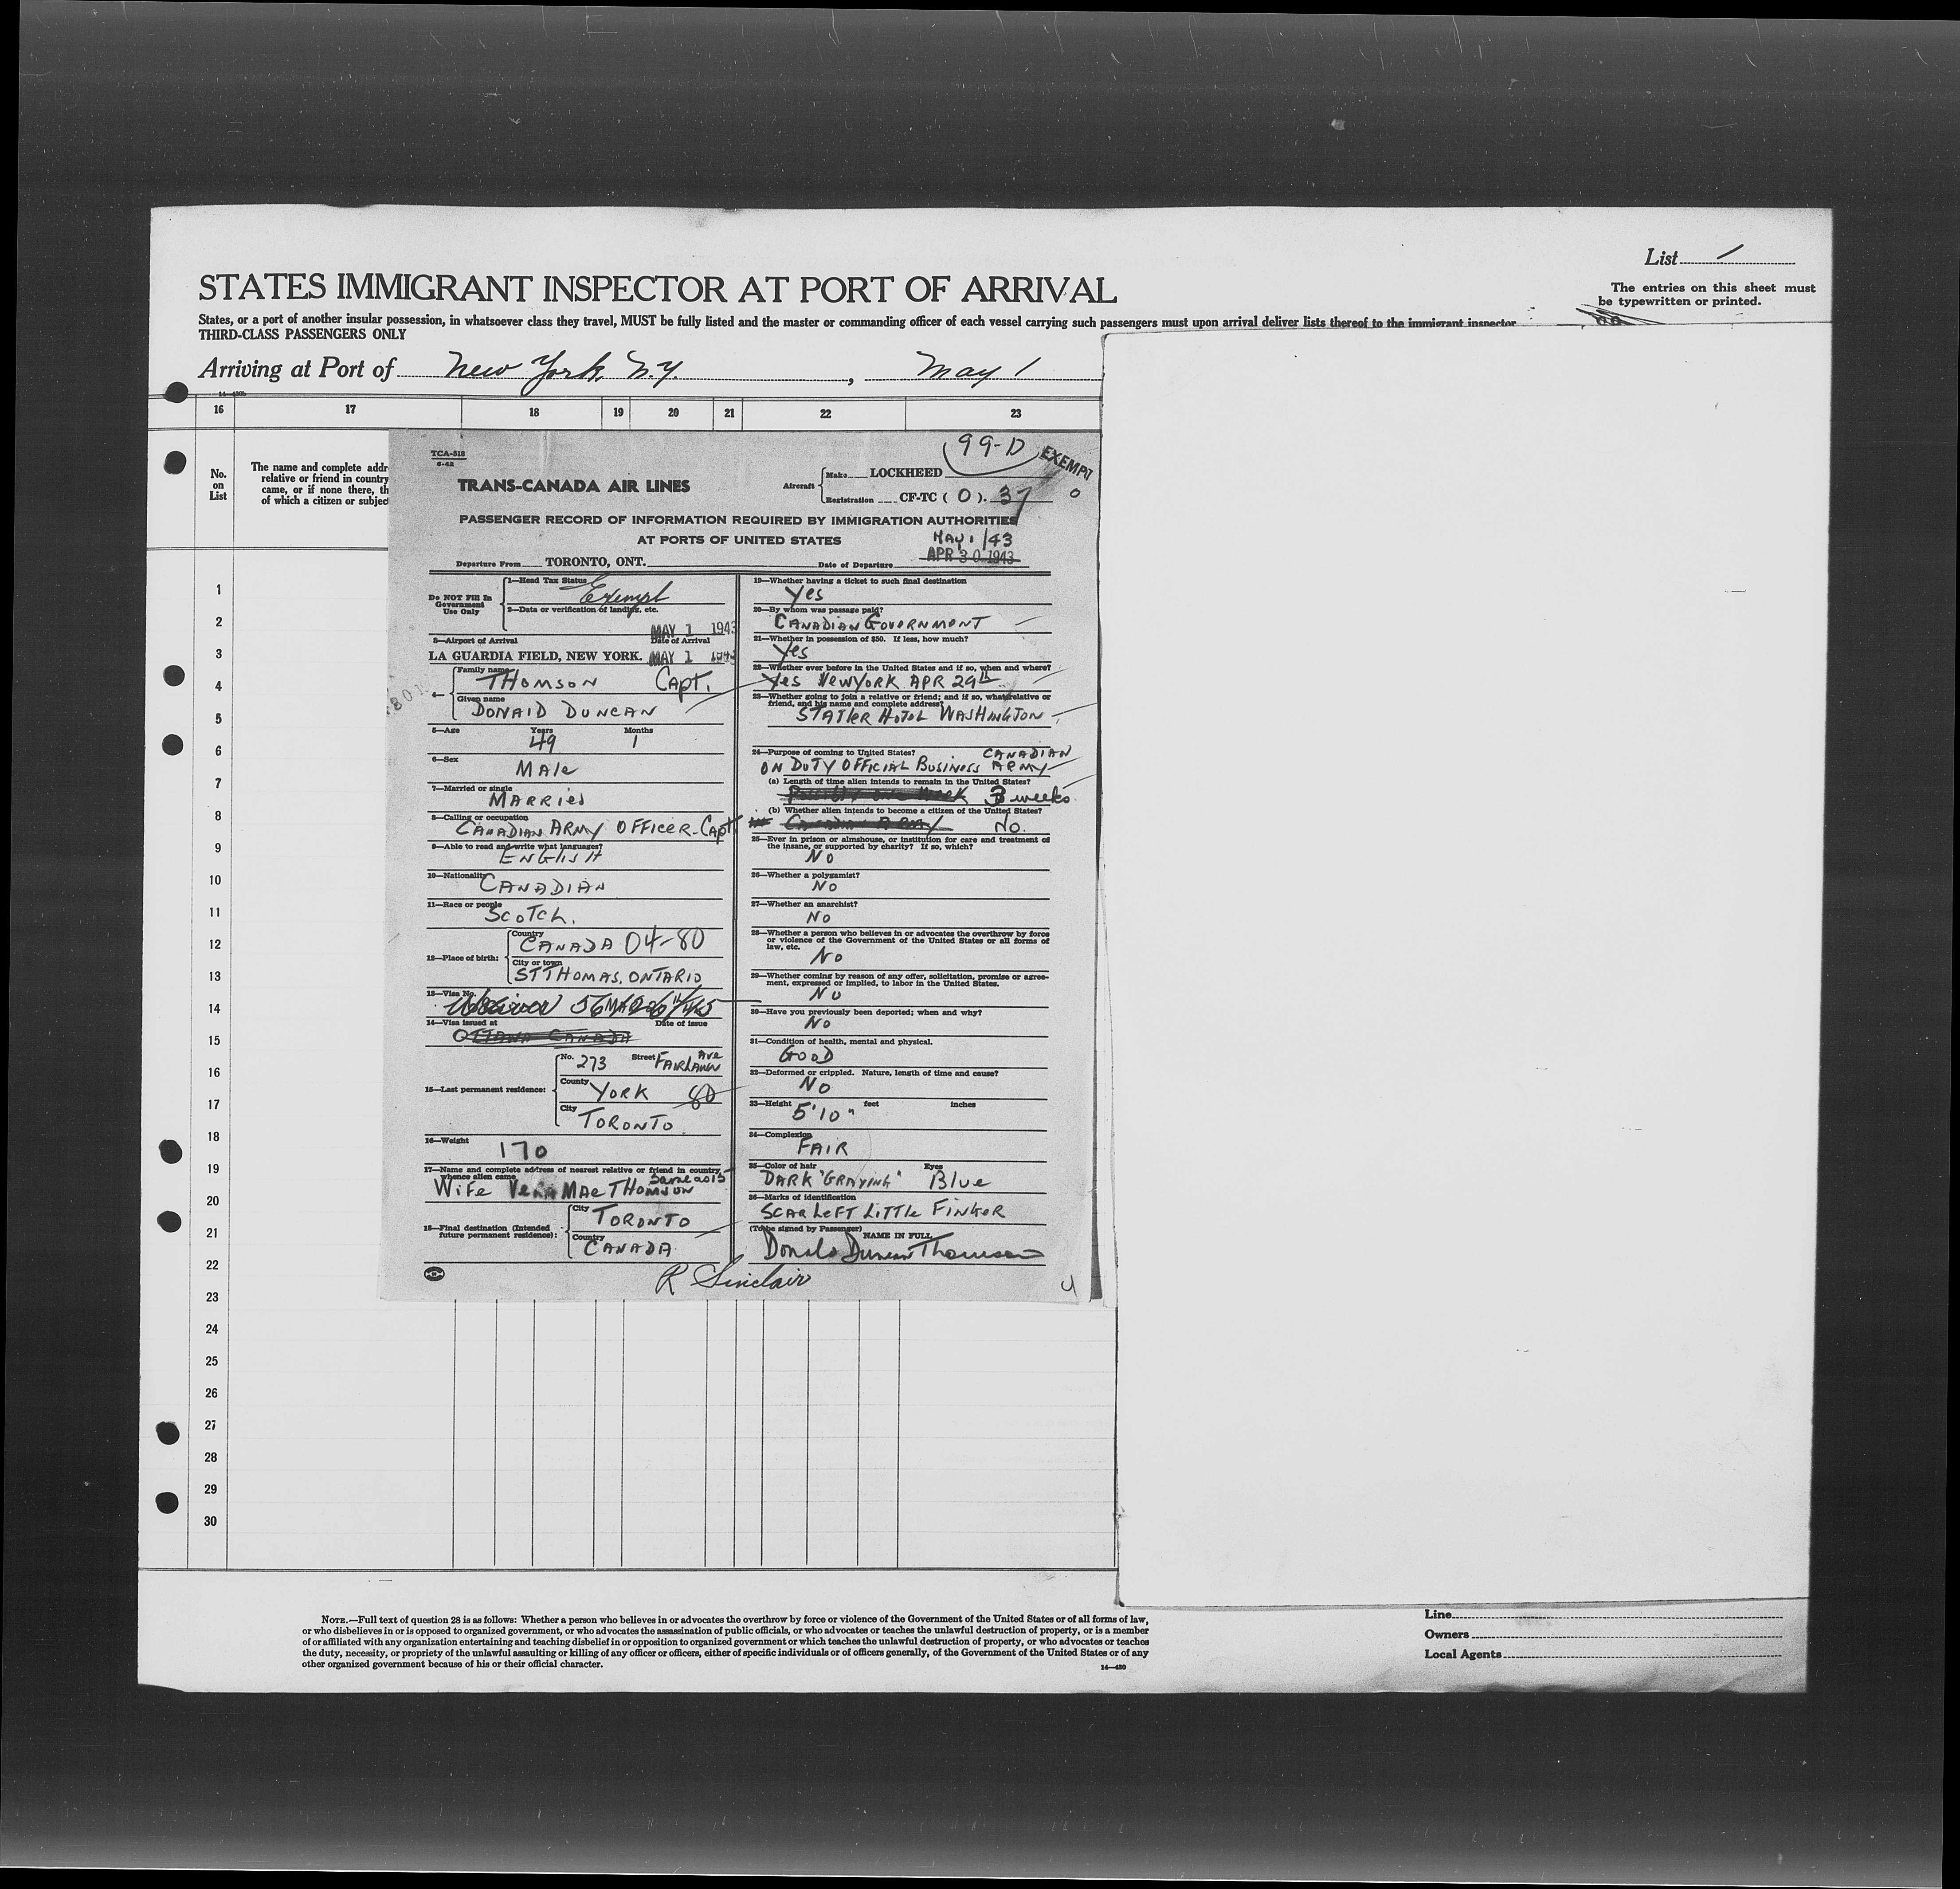 List 1
STATES IMMIGRANT INSPECTOR AT PORT OF ARRIVAL
The entries on this sheet must
be typewritten or printed.
States, or a port of another insular possession, in whatsoever class they travel, MUST be fully listed and the master or commanding officer of each vessel carrying such passengers must upon arrival deliver lists thereof to the immigrant inspector
THIRD-CLASS PASSENGERS ONLY
Arriving at Port of New York, N.Y., May 1
16 17 18 19 20 21 22 23
No.
on
List
The name and complete addr
relative or friend in country
came, or if none there, th
of which a citizen or subjec
TCA-518
6-42
99-D
EXEMPT
0
TRANS-CANADA AIR LINES
Aircraft
Make LOCKHEED
Registration CF-TC ( O ). 37
PASSENGER RECORD OF INFORMATION REQUIRED BY IMMIGRATION AUTHORITIES
AT PORTS OF UNITED STATES
MAY 1/43
APR 30 1943
Departure From TORONTO, ONT. Date of Departure
Do NOT Fill In
Government
Use Only
1—Head Tax Status
Exempt
2—Data or verification of landing, etc.
MAY 1 1943
3—Airport of Arrival Date of Arrival
LA GUARDIA FIELD, NEW YORK. MAY 1 1943
4—
Family name
THOMSON Capt.
Given name
DONALD DUNCAN
5—Age Years Months
49 1
6—Sex
MALe
7—Married or single
MARRIed
8—Calling or occupation
CANADIAN ARMY OFFICER-CAPT
9—Able to read and write what languages?
ENGLISH
10—Nationality
CANADIAN
11—Race or people
SCOTCH.
12—Place of birth:
Country
CANADA 04-80
City or town
ST THOMAS, ONTARIO
13—Visa No.
14—Visa issued at Date of issue
OTTAWA CANADA
15—Last permanent residence:
No. 273 Street FAIRLAWN Ave
County YORK 80
City TORONTO
16—Weight
170
17—Name and complete address of nearest relative or friend in country
whence alien came
Same as 15
WIFe VERA MAe THOMSON
18—Final destination (Intended
future permanent residence):
City TORONTO
Country CANADA
19—Whether having a ticket to such final destination
Yes
20—By whom was passage paid?
CANADIAN GOVERNMENT
21—Whether in possession of $50. If less, how much?
Yes
22—Whether ever before in the United States and if so, when and where?
Yes NEW YORK APR 29th
23—Whether going to join a relative or friend; and if so, what relative or
friend, and his name and complete address?
STATLER HOTEL WASHINGTON
24—Purpose of coming to United States? CANADIAN
ON DUTY OFFICIAL BUSINESS ARMY
(a) Length of time alien intends to remain in the United States?
3 weeks
(b) Whether alien intends to become a citizen of the United States?
CANADIAN ARMY No.
25—Ever in prison or almshouse, or institution for care and treatment of
the insane, or supported by charity? If so, which?
No
26—Whether a polygamist?
No
27—Whether an anarchist?
No
28—Whether a person who believes in or advocates the overthrow by force
or violence of the Government of the United States or all forms of
law, etc.
No
29—Whether coming by reason of any offer, solicitation, promise or agree-
ment, expressed or implied, to labor in the United States.
No
30—Have you previously been deported; when and why?
No
31—Condition of health, mental and physical.
GOOD
32—Deformed or crippled. Nature, length of time and cause?
No
33—Height feet inches
5'10"
34—Complexion
FAIR
35—Color of hair Eyes
DARK "GRAYING" Blue
36—Marks of identification
SCAR LeFT LITTLe FINGER
(To be signed by Passenger) NAME IN FULL
Donald Duncan Thomson
R Sinclair
1
2
3
4
5
6
7
8
9
10
11
12
13
14
15
16
17
18
19
20
21
22
23
24
25
26
27
28
29
30
NOTE.—Full text of question 28 is as follows: Whether a person who believes in or advocates the overthrow by force or violence of the Government of the United States or of all forms of law,
or who disbelieves in or is opposed to organized government, or who advocates the assassination of public officials, or who advocates or teaches the unlawful destruction of property, or is a member
of or affiliated with any organization entertaining and teaching disbelief in or opposition to organized government or which teaches the unlawful destruction of property, or who advocates or teaches
the duty, necessity, or propriety of the unlawful assaulting or killing of any officer or officers, either of specific individuals or of officers generally, of the Government of the United States or of any
other organized government because of his or their official character.
14—430
Line
Owners
Local Agents